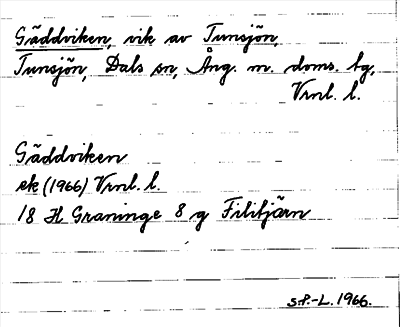 Gäddviken, vik av Tunsjön,
Tunsjön, Dals sn, Ång. m. doms. tg,
Vrnl. l.
Gäddviken
ek (1966) Vrnl. l.
18 H Graninge 8 g Filitjärn
S.P.-L. 1966.